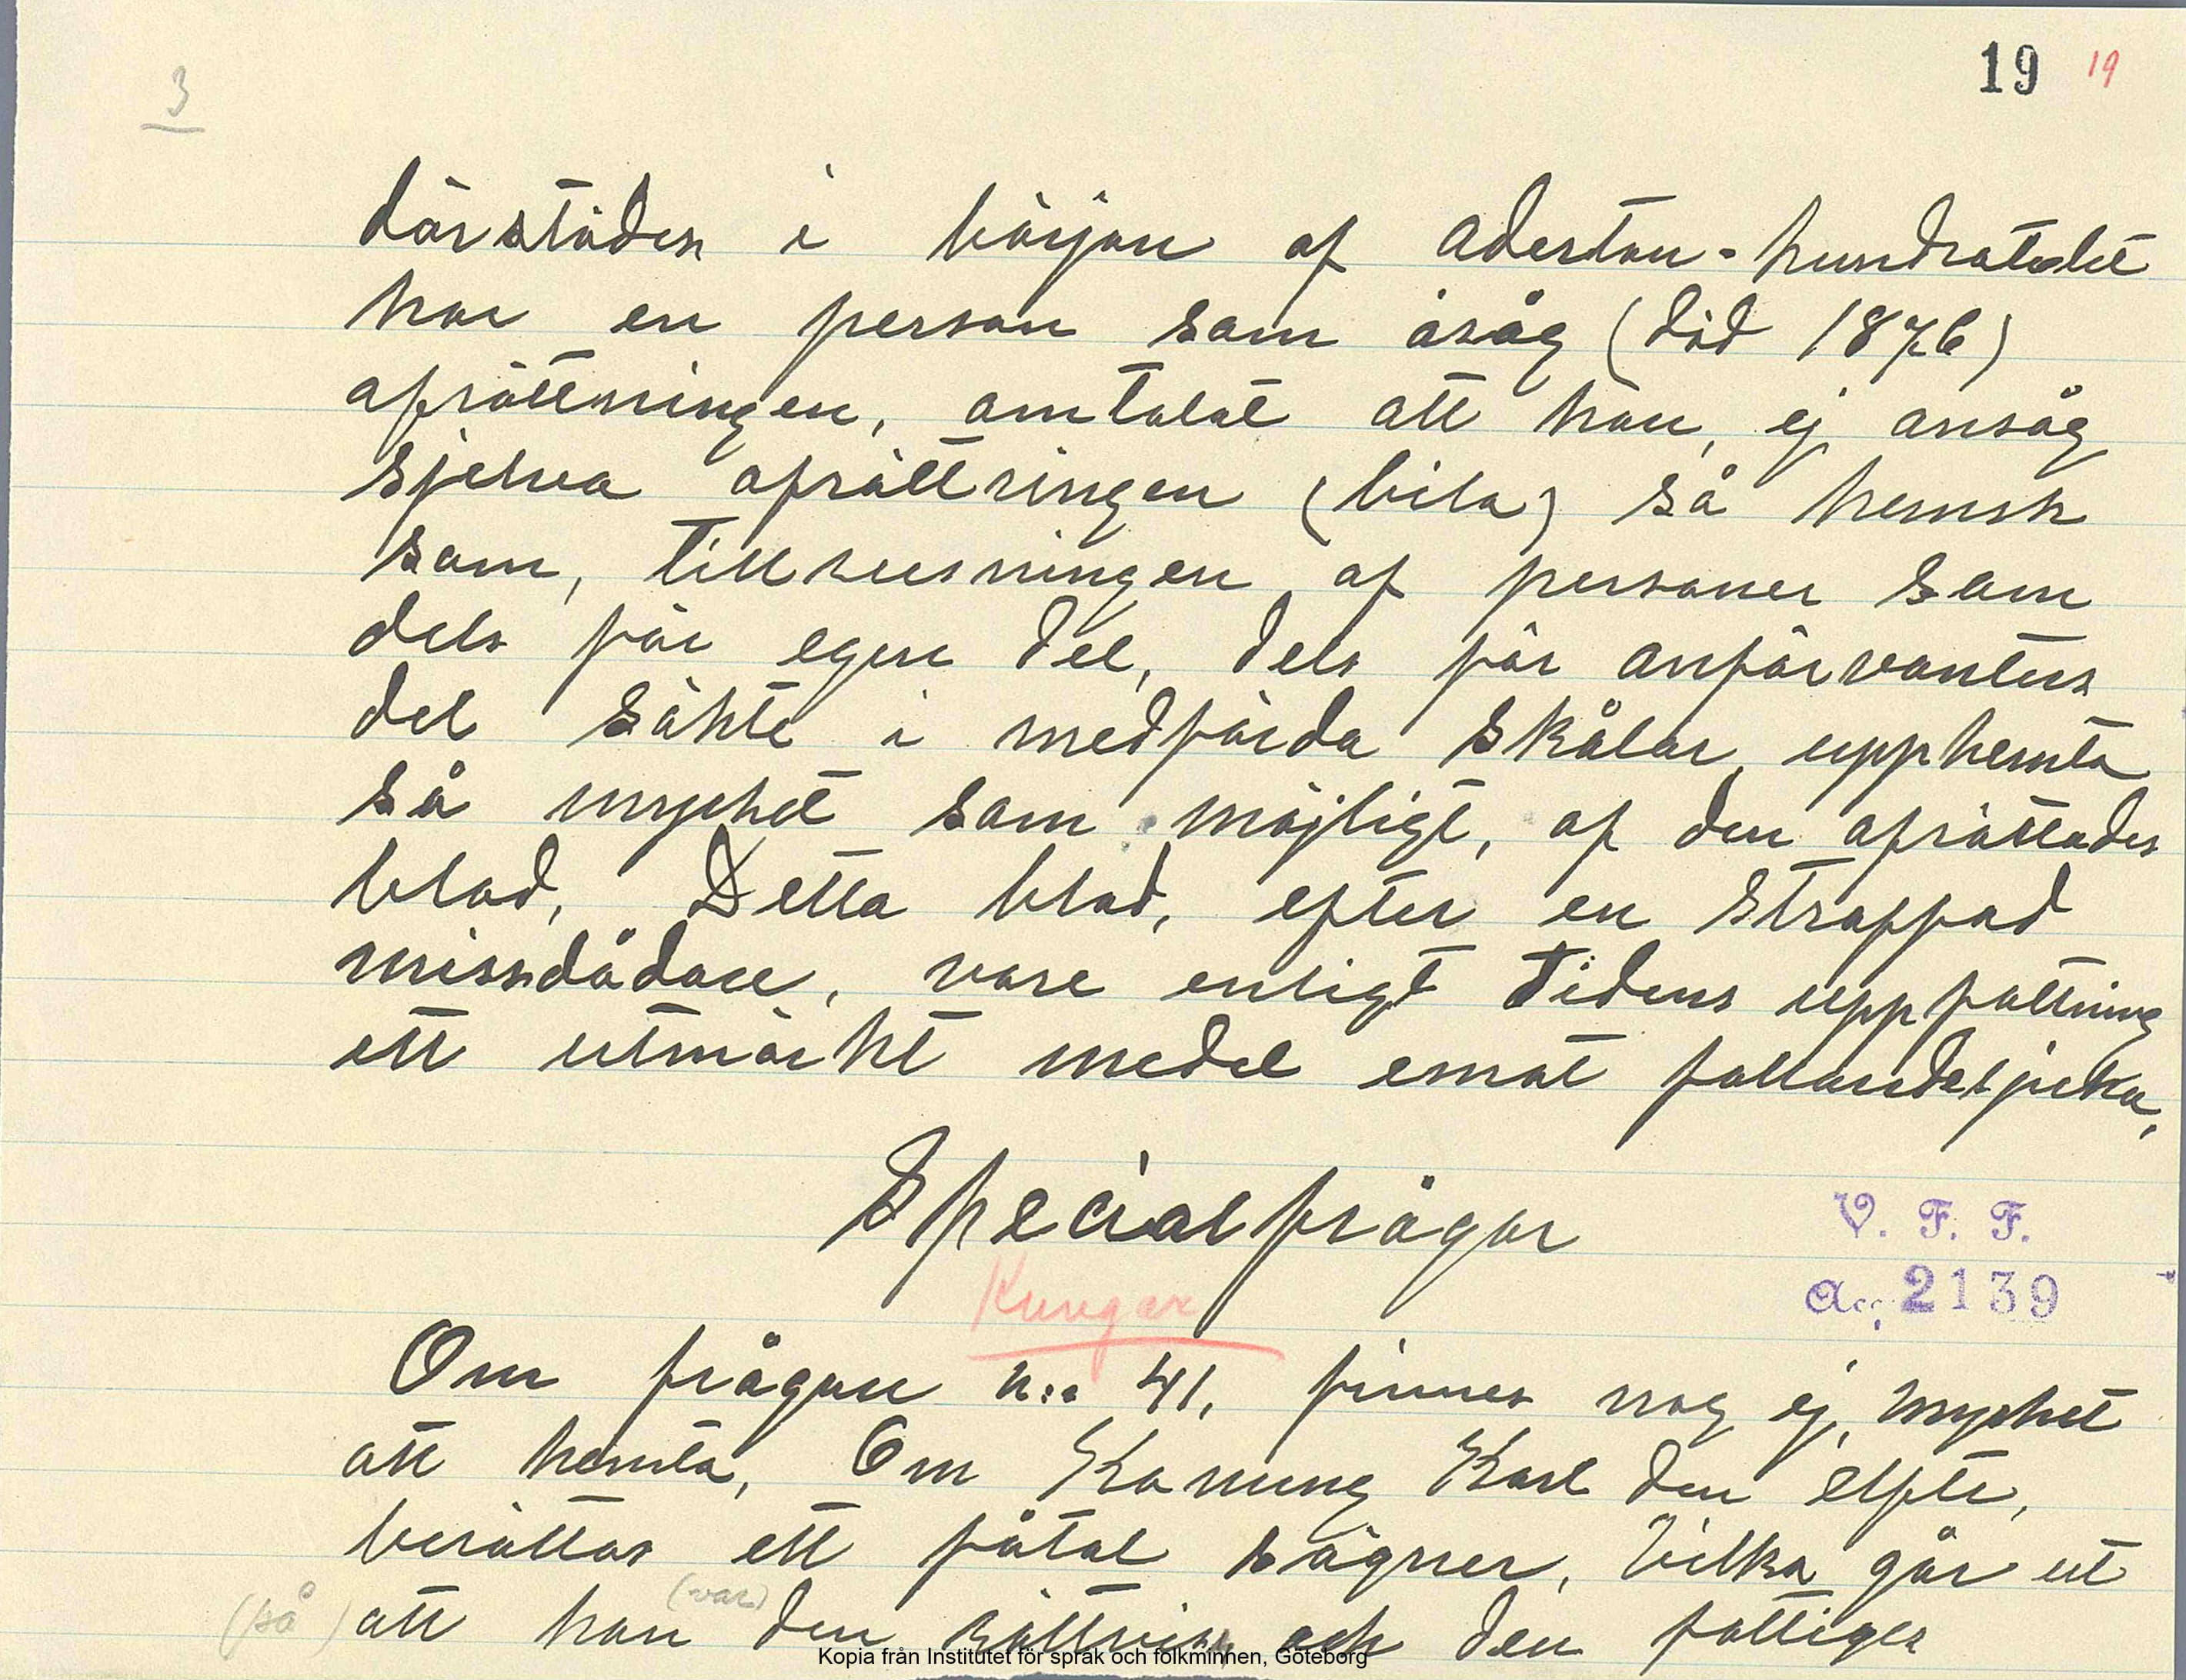 19 19
3
därstädes i början af Aderton-hundratalet
har en person som åsåg (död 1876)
afrättningen, omtalat att han, ej ansåg
sjelva afrättningen (bila) så hemsk
som, tillrusningen af personer som
dels för egen del, dels för anförvanters
del sökte i medförda skålar upphemta
så mycket som möjligt, af den afrättades
blod, Detta blod, efter en straffad
missdådare, vare enligt tidens uppfattning
ett utmärkt medel emot fallandesjuka,
Specialfrågor
V. F. F.
Kungar
Acc. 2139
Om frågan n:o 41, finnes nog ej, mycket
att hemta, Om Konung Karl den elfte,
berättas ett fåtal sägner, vilka går ut
(så) att han (var) den rättvise och den fattiges
Kopia från Institutet för språk och folkminnen, Göteborg